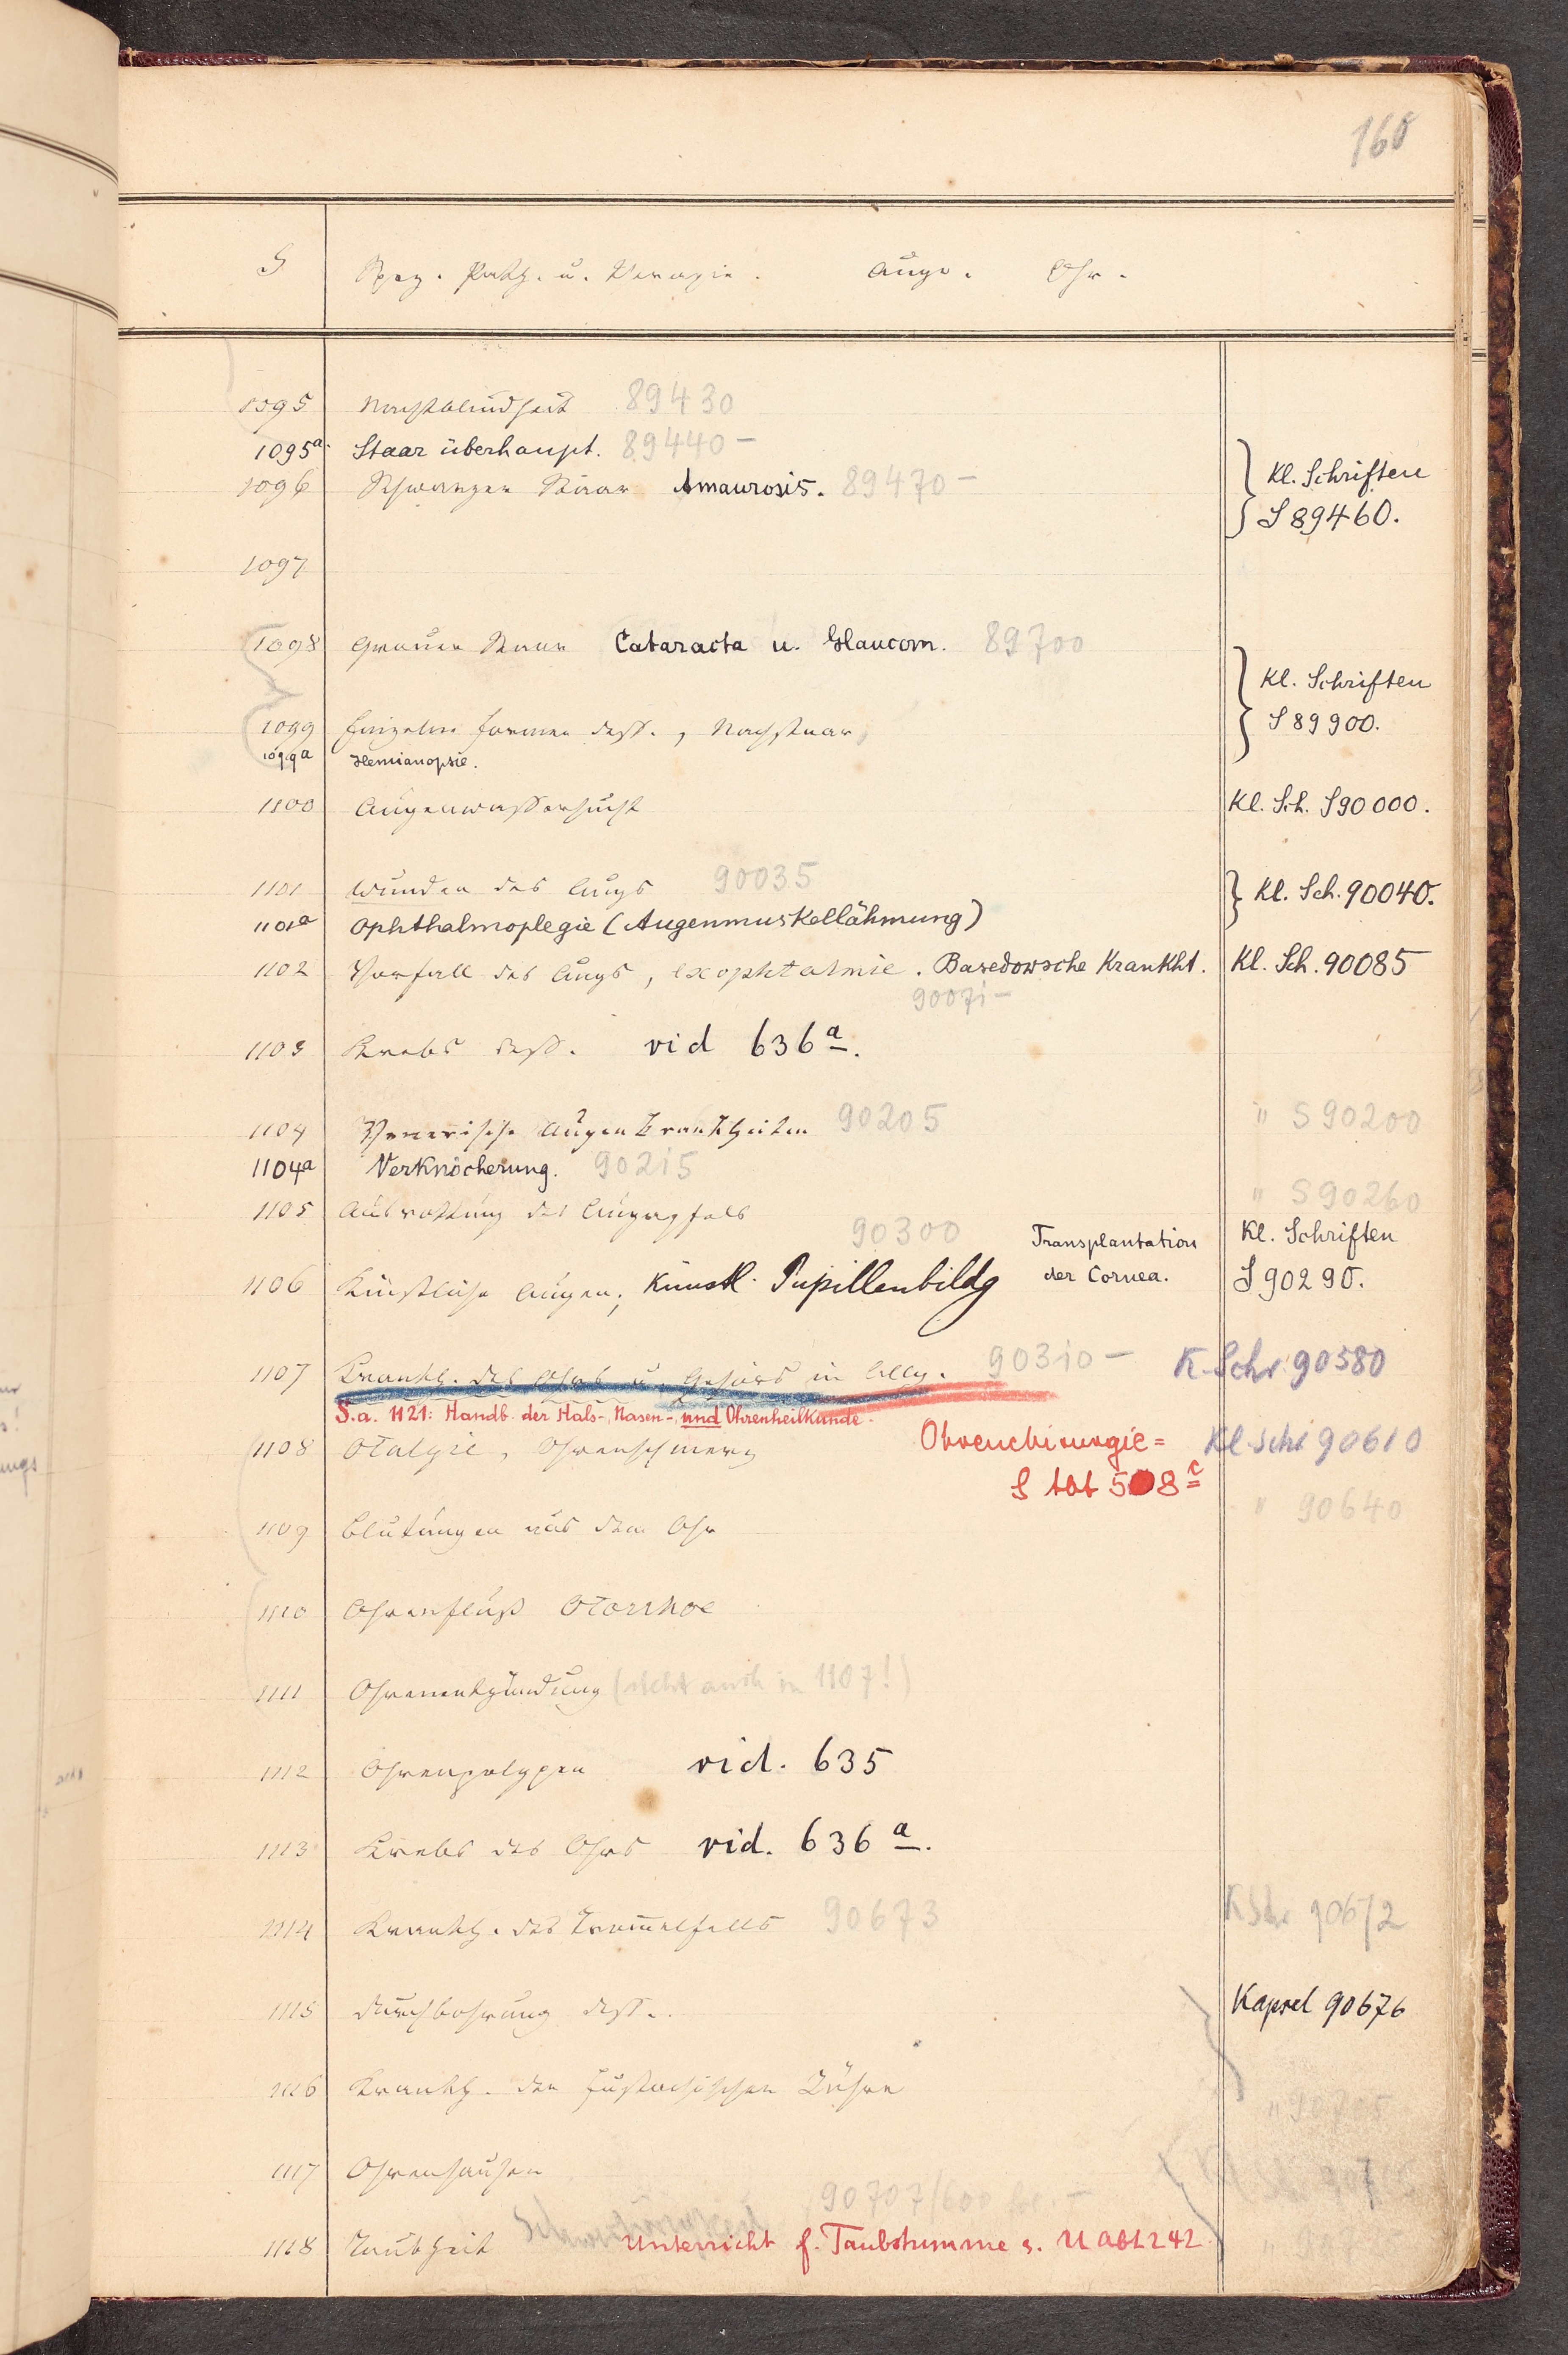 160
S Spez. Path. u. Therapie. Auge. Ohr.
1095 Nachtblindheit 89430
1095a Staar überhaupt. 89440 –
1096 Schwarzer Staar Amaurosis. 89470 –
Kl. Schriften
S 89460.
1097
1098 Grauer Staar Cataracta u. Glaucom. 89700
Kl. Schriften
S 89900.
1099 Einzelne Formen dess., Nachstaar,
1099a Hemianopsie.
1100 Augenwassersucht Kl. Sch. S 90000.
1101 Wunden des Augs 90035
Kl. Sch. 90040.
1101a Ophthalmoplegie (Augenmuskellähmung)
1102 Vorfall des Augs, Exophtalmie. Basedowsche Krankht. Kl. Sch. 90085
90071 –
1103 Krebs dess. vid 636a.
1104 Venerische Augenkrankheiten 90205 " S 90200
1104a Verknöcherung. 90215
" S 90260
1105 Ausrottung des Augapfels
90300 Transplantation Kl. Schriften
1106 Künstliche Augen; Künstl. Pupillenbildg der Cornea. S 90290.
1107 Krankh. des Ohrs u. Gehörs im Allg. 90310 – K. Schr. 90580
S. a. 1121: Handb. der Hals-, Nasen-, und Ohrenheilkunde.
1108 Otalgie, Ohrenschmerz Ohrenchirurgie = Kl. Schr 90610
508c
" 90640
1109 Blutungen aus dem Ohr
1110 Ohrenfluß Otorrhoe
1111 Ohrenentzündung (steht auch in 1107!)
1112 Ohrenpolypen vid. 635
1113 Krebs des Ohrs vid. 636a.
1114 Krankh. des Trom̄elfells 90673 KSchr 90672
1115 Durchbohrung dess. Kapsel 90676
1116 Krankh. der Eustachischen Röhre
" 90705
1117 Ohrensausen
90707/600
1118 Taubheit Unterricht f. Taubstumme s.